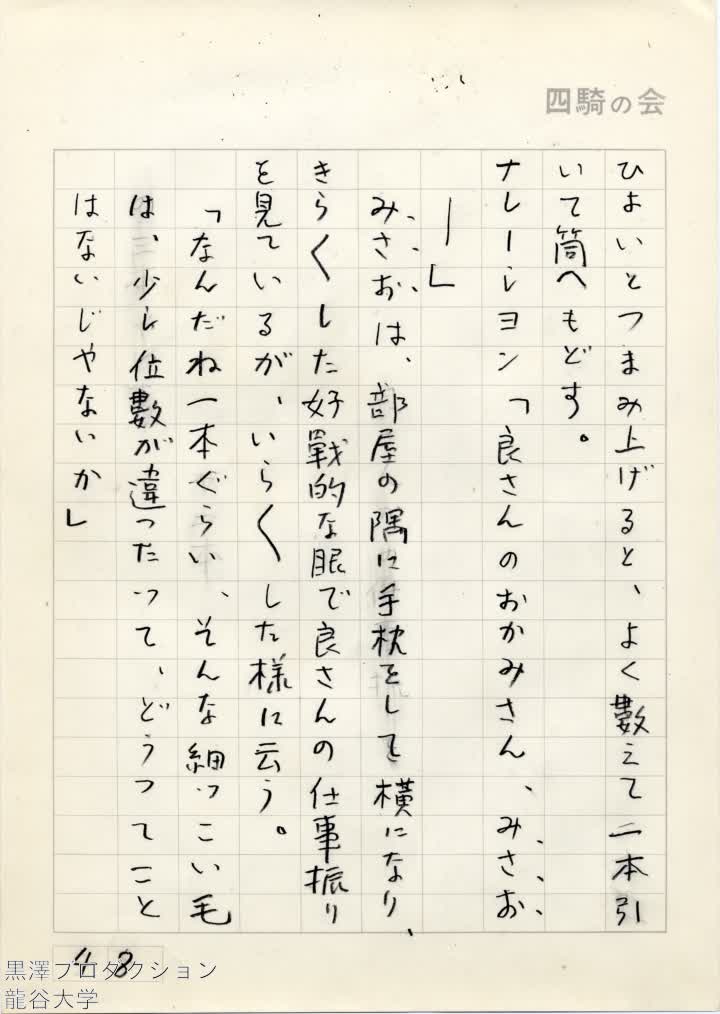 四騎の会
ひよいとつまみ上げると、よく數えて二本引
いて筒へもどす。
ナレーション「良さんのおかみさん、みさお
──」
みさおは、部屋の隅に手枕をして横になり、
きら〱した好戰的な眼で良さんの仕事振り
を見ているが、いら〱した様に云う。
「なんだね一本ぐらい、そんな細っこい毛
は、少し位數が違ったって、どうってこと
はないじゃないか」
48
黒澤プロダクション
龍谷大学